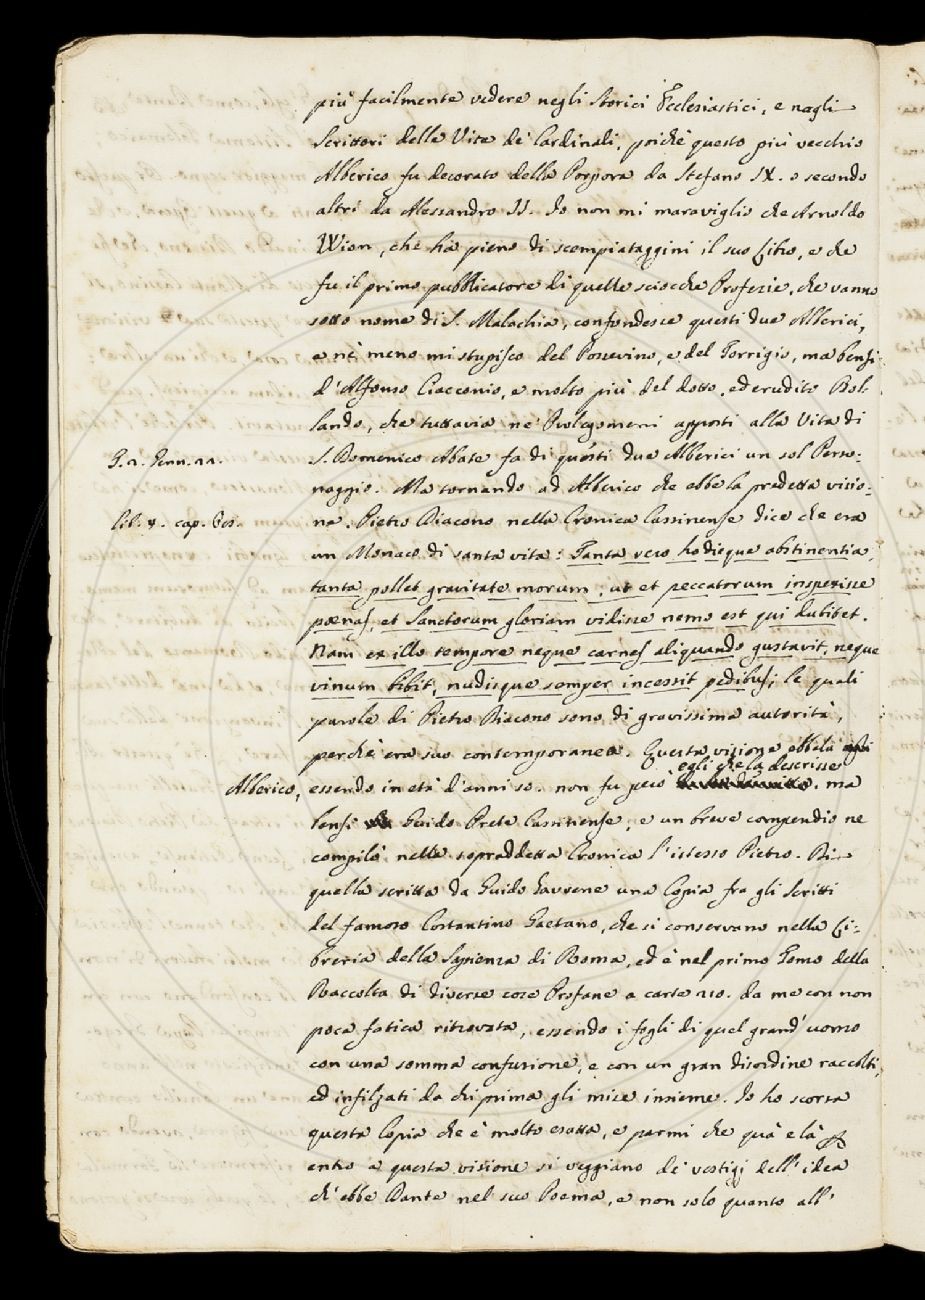 più facilmente vedere negli Storici Ecclesiastici, e nagli
Scrittori delle Vite de' Cardinali, poichè questo più vecchio
Alberico fu decorato della Porpora da Stefano IX. o secondo
altri da Alessandro II. Io non mi maraviglio che Arnoldo
Wion, che ha pieno di scempiataggini il suo Libro, e che
fu il primo pubblicatore di quelle sciocche Profezie, che vanno
sotto nome di S. Malachia, confondesse questi due Alberici,
e nè meno mi stupisco del Possevino, e del Torrigio, ma bensì
d'Alfonso Ciacconio, e molto più del dotto, ed erudito Bol:
lando, che tuttavia ne' Prolegomeni apposti alla Vita di
S. Domenico Abate fa di questi due Alberici un sol Perso:
naggio. Ma tornando ad Alberico che ebbe la predetta visio:
lib. 4. cap.
ne. Pietro Diacono nella Cronica Cassinense dice che era
un Monaco di santa vita: Tanta vero hodieque abstinentia,
tanta pollet gravitate morum, ut et peccatorum inspexisse
pœnas, et Sanctorum gloriam vidisse nemo est qui dubitet.
Nam ex illo tempore neque carnes aliquando gustavit, neque
vinum bibit, nudisque semper incessit pedibus; le quali
parole di Pietro Diacono sono di gravissima autorità,
perchè era suo contemporaneo. Questa visione ebbela
egli che la descrisse
Alberico, essendo in età d'anni 10. non fu però ma
bensì Guido Prete Cassinense, e un breve compendio ne
compilò nella sopraddetta Cronica l'istesso Pietro. Di
quella scritta da Guido havvene una Copia fra gli Scritti
del famoso Costantino Gaetano, che si conservano nella Li:
breria della Sapienza di Roma, ed è nel primo Tomo della
Raccolta di diverse cose Profane a carte 210. da me con non
poca fatica ritrovata, essendo i fogli di quel grand'uomo
con una somma confusione, e con un gran disordine raccolti,
ed infilzati da chi prima gli mise insieme. Io ho scorsa
questa Copia che è molto esatta, e parmi che quà e là
entro a questa visione si veggiano de' vestigj dell'idea
ch'ebbe Dante nel suo Poema, e non solo quanto all'